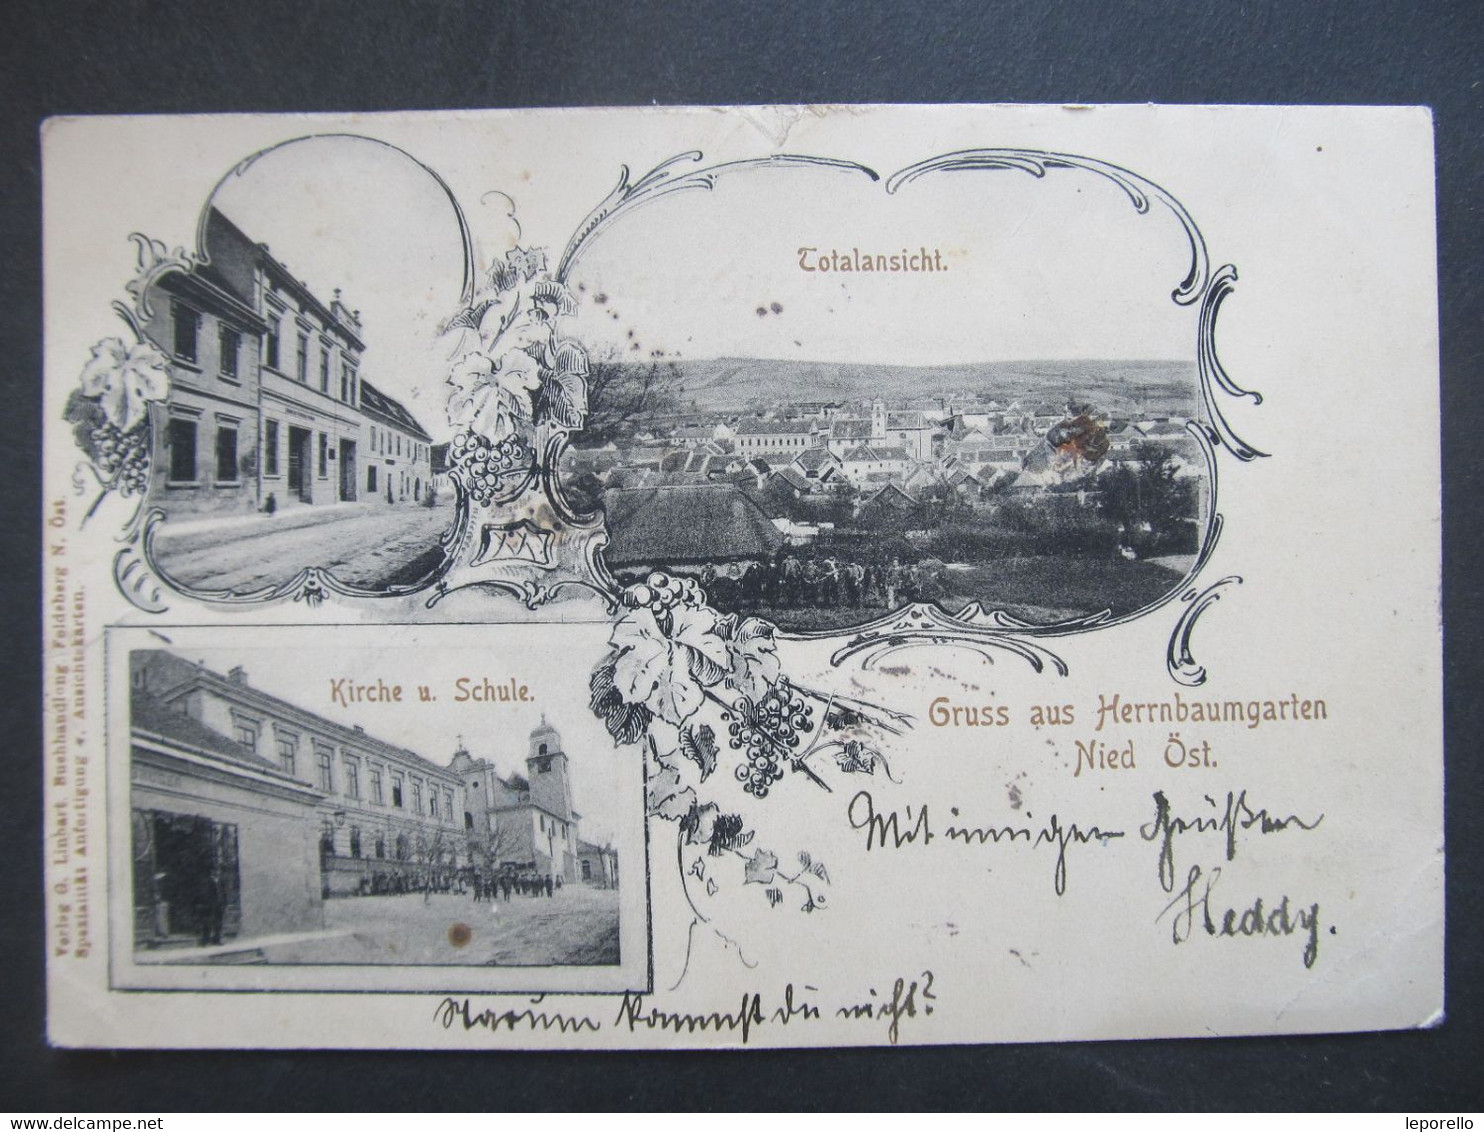 Totalansicht.
Kirche u. Schule.
Gruss aus Herrnbaumgarten
Nied Öst.
Mit innigen Grüßen
Heddy.
Warum kommst du nicht?
Verlag G. Linhart. Buchhandlung Feldsberg N. Öst.
Spezialität Anfertigung v. Ansichtskarten.
www.delcampe.net
leporello